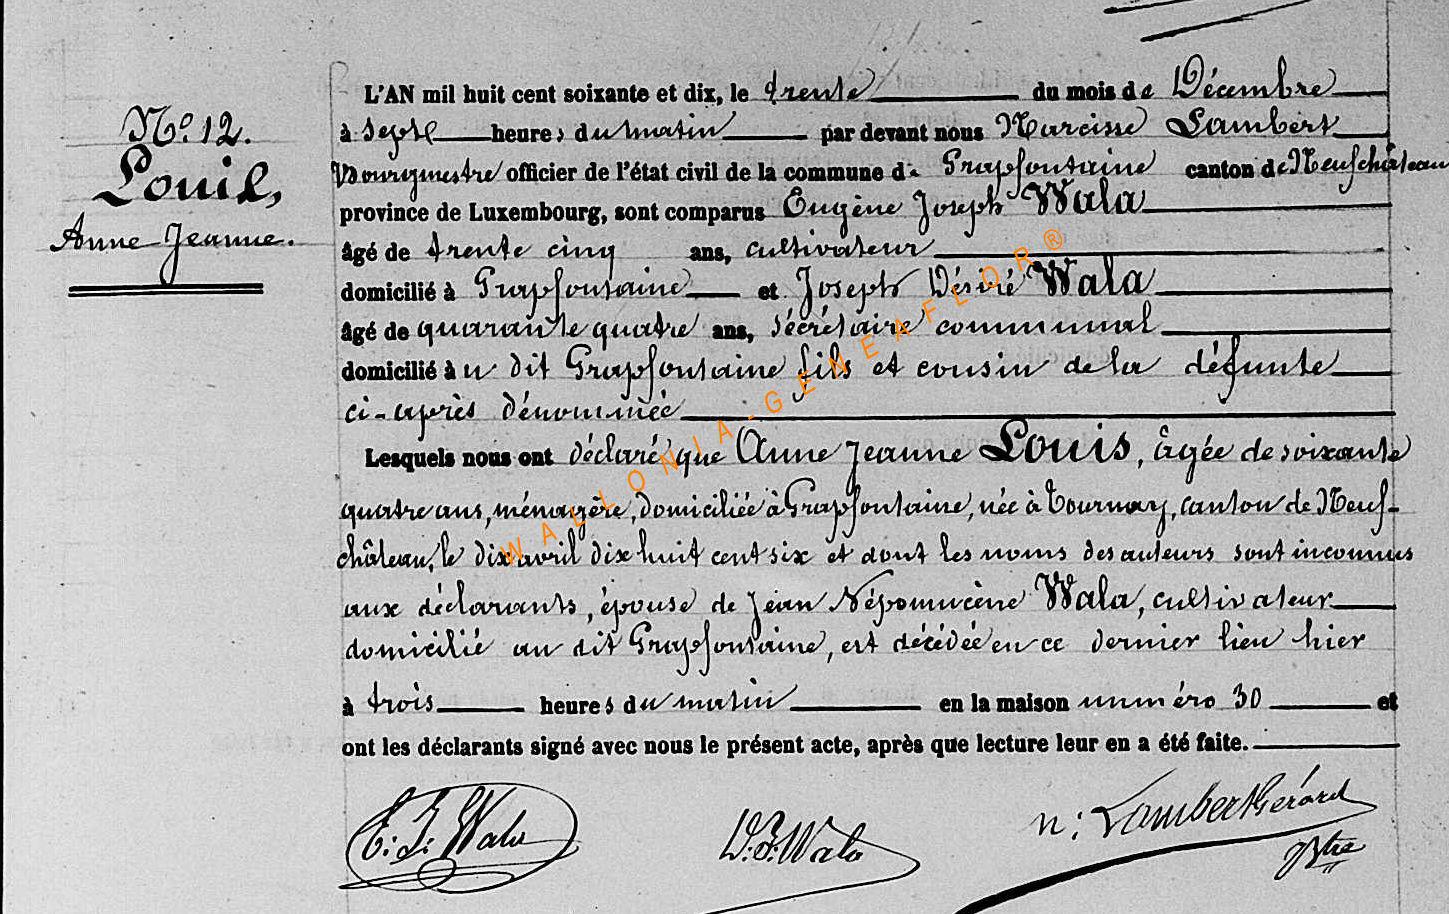 N.o 12.
Louis,
Anne Jeanne.
L'AN mil huit cent soixante et dix, le trente du mois de Décembre
à sept heures du matin par devant nous Narcisse Lambert
Bourgmestre officier de l'état civil de la commune de Grapfontaine canton de Neufchâteau
province de Luxembourg, sont comparus Eugène Joseph Wala
âgé de trente cinq ans, cultivateur
domicilié à Grapfontaine et Joseph Désiré Wala
âgé de quarante quatre ans, sécrétaire communal
domicilié au dit Grapfontaine fils et cousin de la défunte
ci-après dénommée
Lesquels nous ont déclaré que Anne Jeanne Louis, âgée de soixante
quatre ans, ménagère, domiciliée à Grapfontaine, née à Tournay, canton de Neuf-
château, le dix avril dix huit cent six et dont les noms des auteurs sont inconnus
aux déclarants, épouse de Jean Népomucène Wala, cultivateur
domicilié au dit Grapfontaine, est décédée en ce dernier lieu hier
à trois heures du matin en la maison numéro 30 et
ont les déclarants signé avec nous le présent acte, après que lecture leur en a été faite.
E. J. Wala D. J. Wala N: Lambert Gérard
Bstre
WALLONIA-GENEAFLOR®